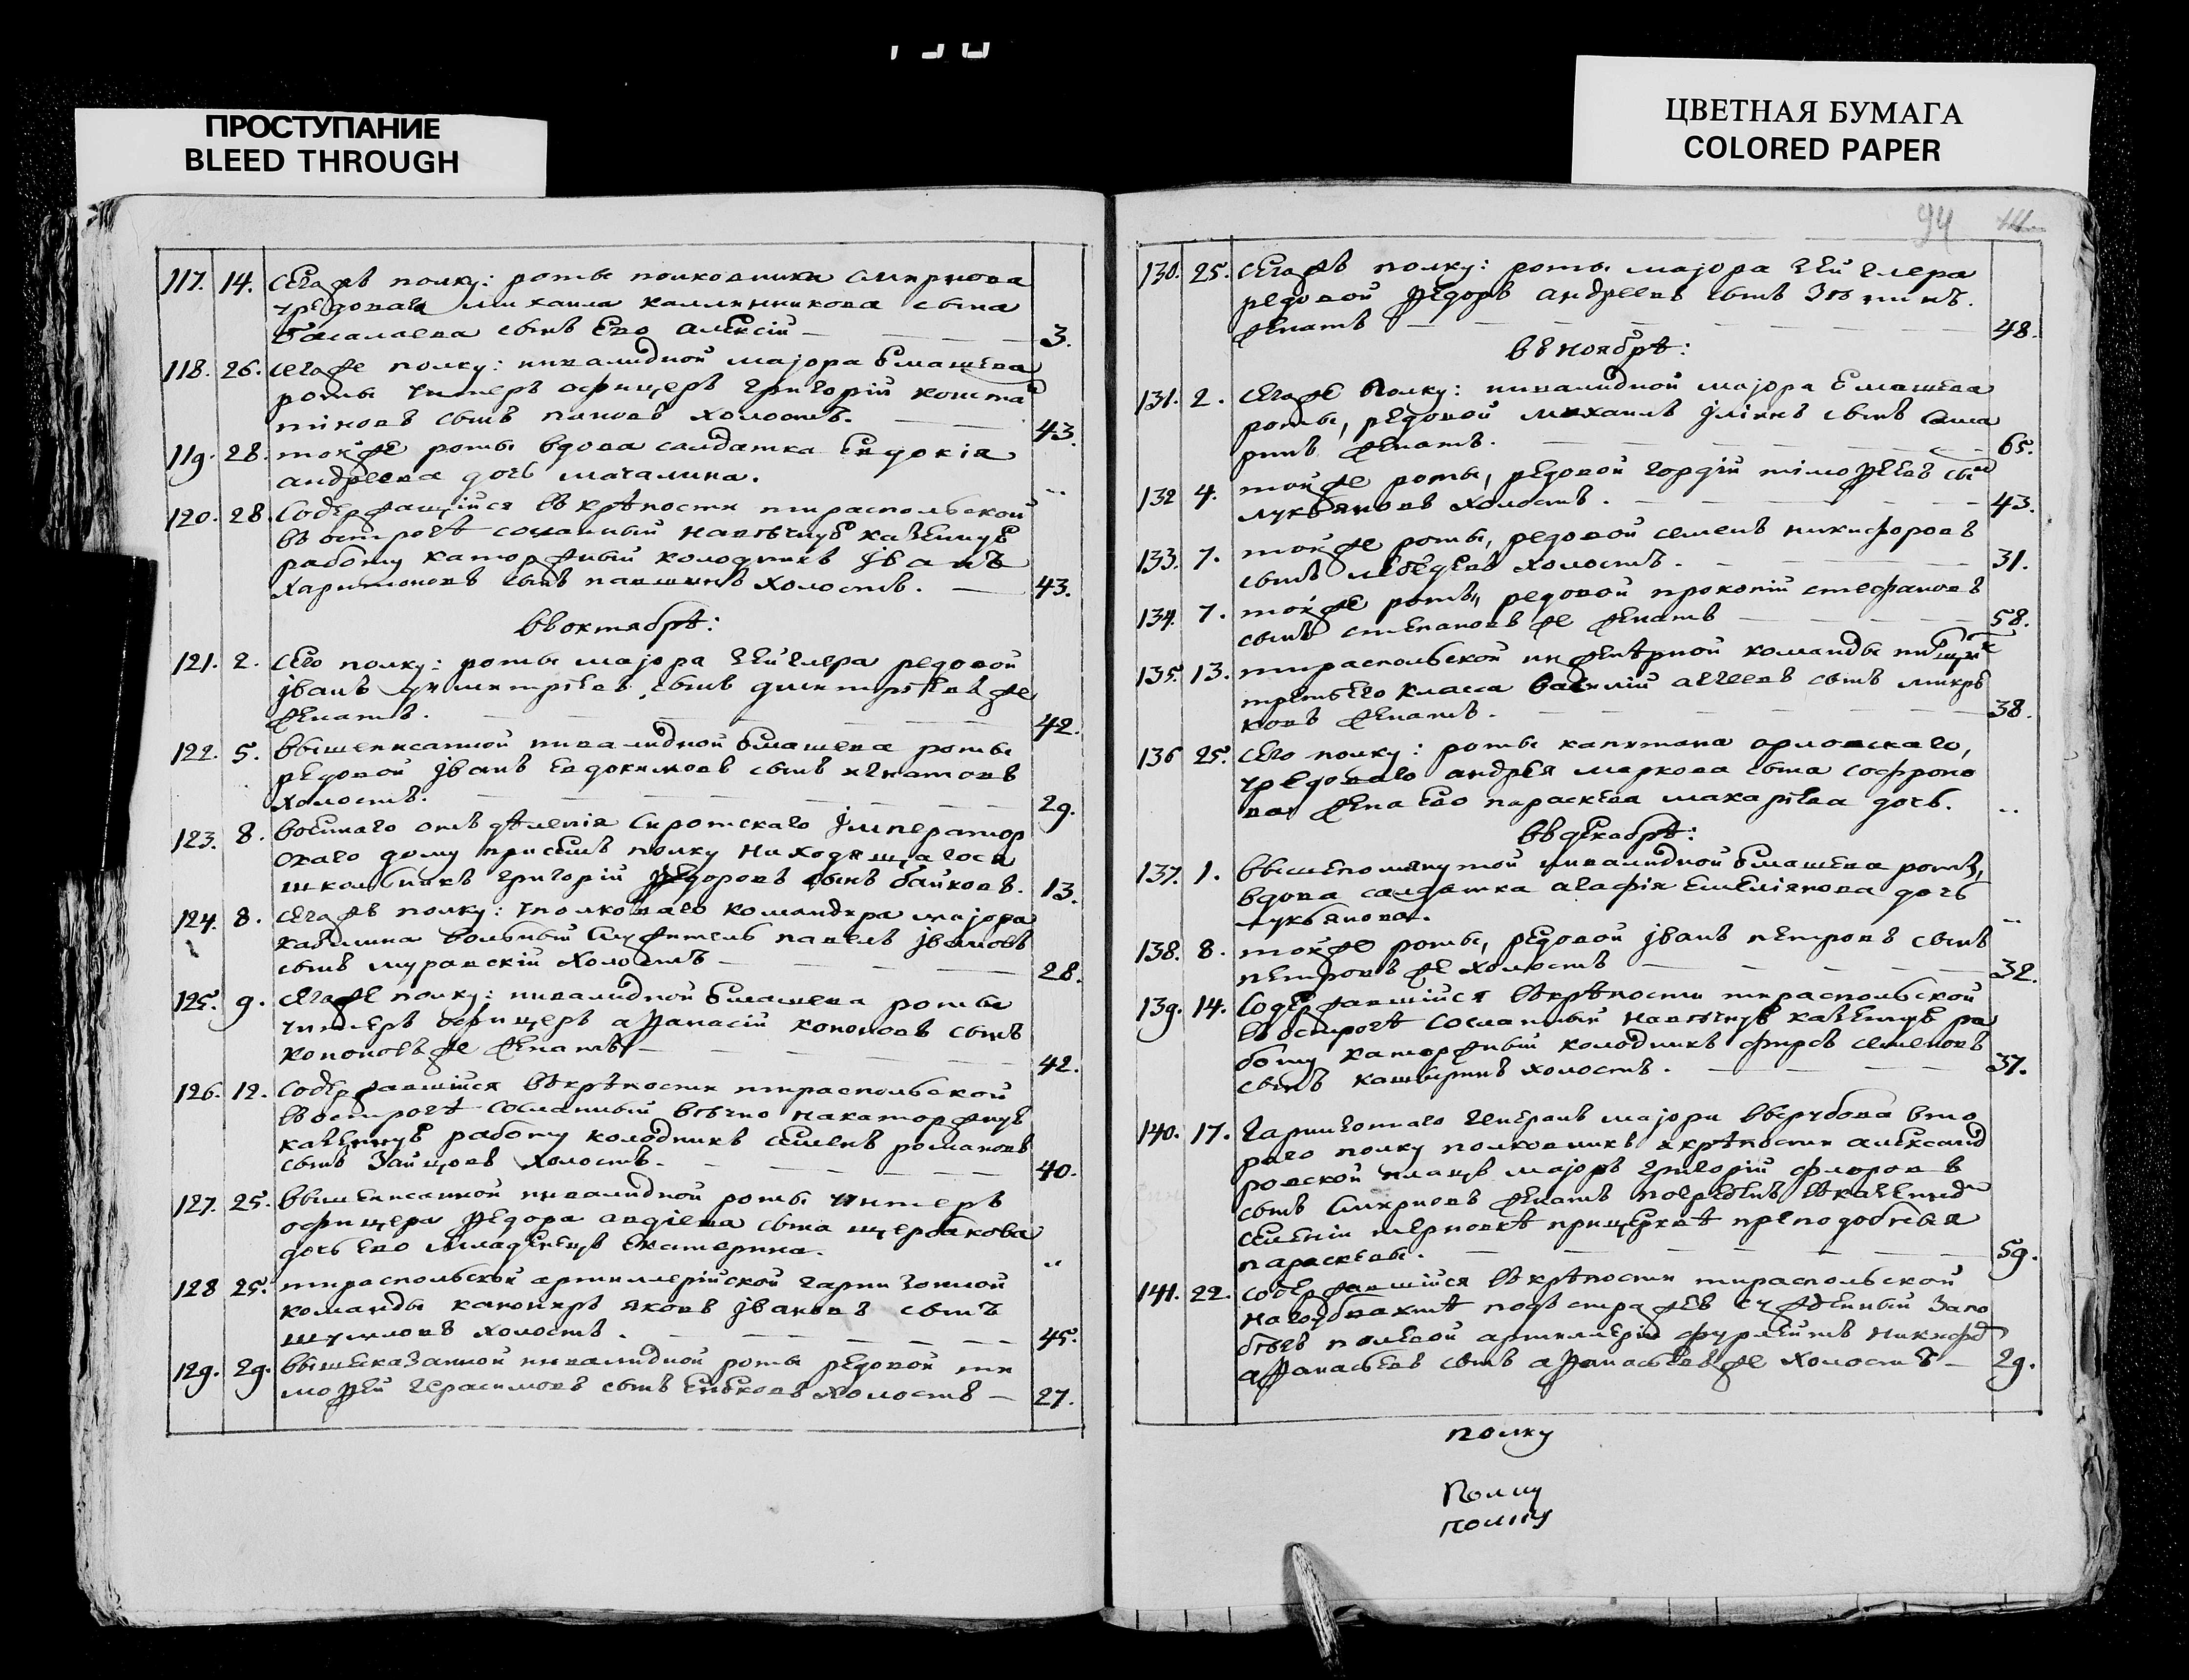 ПРОСТУПАНИЕ
BLEED THROUGH
ЦВЕТНАЯ БУМАГА
COLORED PAPER
117. 14. Сегожъ полку: роты полковника Смирнова
урядоваго михаила каллинникова сына
сынъ Ево алексій 3.
118. 26. сегоже полку: инвалидной маіора Емашева
роты унтеръ офицеръ григорій конста
тіновъ сынъ пановъ холостъ. 43.
119. 28. тойже роты вдова салдатка Евдокія
андреева дочь мачалина. ..
120. 28. Содержащійся въ крѣпости тираспольской
въ острогѣ сосланный навѣчнуѣ казеннуѣ
работу каторжный колодникъ іванъ
Харитоновъ сынъ паншинъ холостъ. 43.
въ октябрѣ:
121. 2. Сего полку: роты маіора гейглера редовой
іванъ димитріевъ, сынъ димитріевъ же
женатъ. 42.
122. 5. вышеписанной инвалидной Емашева роты
редовой іванъ евдокимовъ сынъ игнатовъ
холостъ. 29.
123. 8. военнаго отъ дѣленія Сиротскаго імператор
скаго дому присемъ полку находящагося
школьникъ григорій Ѳедоровъ сынъ байковъ. 13.
124. 8. сегожъ полку: уполковаго командира маіора
вольный служитель павелъ івановъ
сынъ муравскій холостъ 28.
125. 9. сегоже полку: инвалидной Емашева роты
унтеръ офицеръ аѲанасій кононовъ сынъ
кононовъ же женатъ 42.
126. 12. Содержавшійся въ крѣпости тираспольской
въ острогѣ сосланный вѣчно накаторжнуѣ
казеннуѣ работу колодникъ семенъ романовъ
сынъ Зайцовъ холостъ. 40.
127. 25. вышеписанной инвалидной роты унтеръ
офицера Ѳедора авдіева сына щербакова
дочь ево младенецъ екатерина. ..
128 25. тираспольской артиллерійской гарнизонной
команды канониръ яковъ івановъ сынъ
шумиловъ холостъ. 45.
129. 29. вышеказанной инвалидной роты редовой ти
моѲей герасимовъ сынъ холостъ 27.
94
130. 25. Сегожъ полку: роты маіора гейглера
редовой Ѳедоръ андреевъ сынъ
женатъ 48.
въ ноябрѣ:
131. 2. Сегоже полку: инвалидной маіора Емашева
роты, редовой михаилъ іліинъ сынъ сама
ринъ женатъ. 65.
132 4. тойже роты, редовой гордій тімоѲеевъ сынъ
лукьяновъ холостъ. 43.
133. 7. тойже роты, редовой семенъ никифоровъ
сынъ лебедевъ холостъ. 31.
134. 7. тойже роты, редовой прокопій стефановъ
сынъ степановъ же женатъ 58.
135. 13. тираспольской инженѣрной команды
третьего класса василій агеевъ сынъ
ковъ женатъ. 38.
136 25. Сего полку: роты капитана орловскаго,
уредоваго андрея маркова сына софроно
ва жена ево параскева макаріева дочь. ..
въ декабрѣ:
137. 1. вышепомянутой инвалидной Емашева роты,
вдова салдатка агафія емеліянова дочь
лукьянова. ..
138. 8. тойже роты, редовой іванъ петровъ сынъ
петровъ же холостъ 32.
139. 14. Содержавшійся въ крѣпости тираспольской
въ острогѣ сосланный навѣчнуѣ казеннуѣ ра
боту каторжный колодникъ фирсъ семеновъ
сынъ холостъ. 37.
140. 17. гарнизоннаго генералъ маіора вырубова вто
раго полку полковникъ и крѣпости александ
ровской плацъ маіоръ григорій флоровъ
сынъ Смирновъ женатъ погребенъ въ казенном
селеніи терновкѣ прицерквѣ преподобныя
параскевы. 59.
141. 22. содержавшійся въ крѣпости тираспольской
нагоубвахтѣ подъ стражеѣ сужденный запо
бѣгъ полевой артиллеріи фурлейтъ никифоръ
аѲанасьевъ сынъ аѲанасьевъ же холостъ 29.
полку
полку
полку